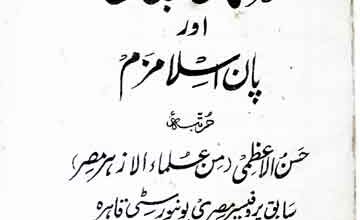 اور
پان اسلامزم
مرتبہٴ
حسن الاعظمی (من علماء الازہر مصر)
سابق پروفیسر مصری یونیورسٹی قاہرہ